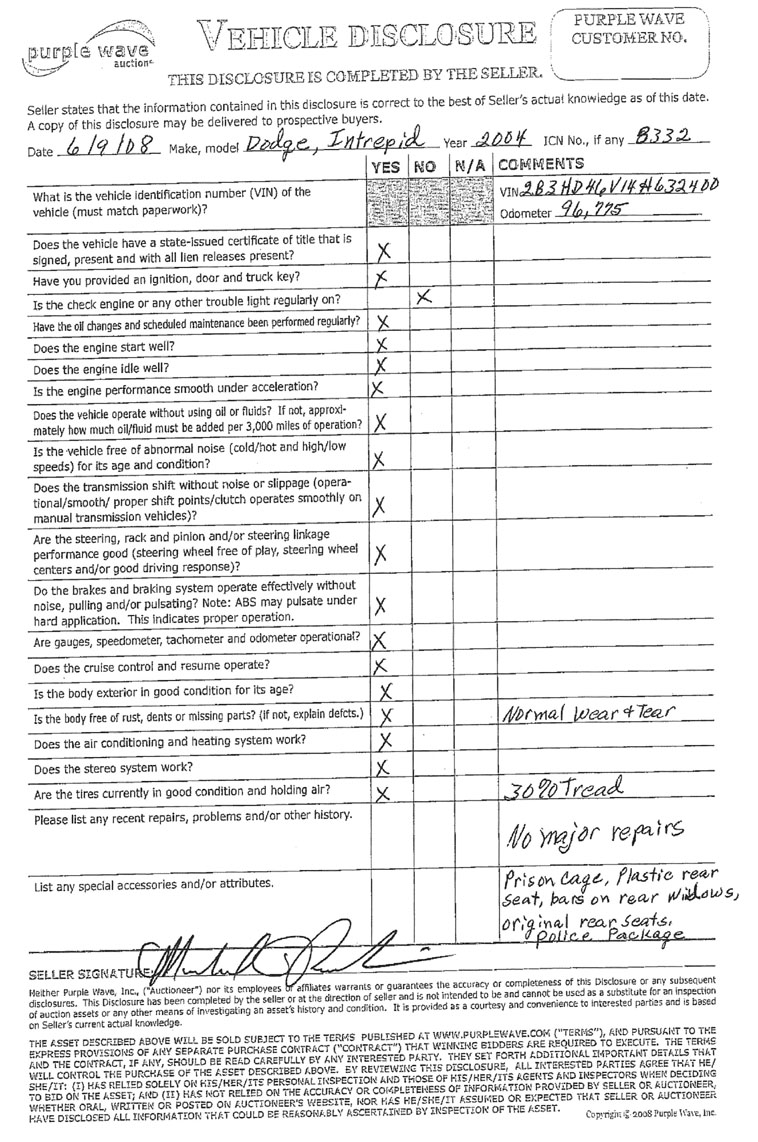 purple wave
auction®
VEHICLE DISCLOSURE
PURPLE WAVE
CUSTOMER NO.
THIS DISCLOSURE IS COMPLETED BY THE SELLER.
Seller states that the information contained in this disclosure is correct to the best of Seller's actual knowledge as of this date.
A copy of this disclosure may be delivered to prospective buyers.
Date 6/9/08 Make, model Dodge, Intrepid Year 2004 ICN No., if any B332
YES NO N/A COMMENTS
What is the vehicle identification number (VIN) of the
vehicle (must match paperwork)?
VIN 2B3HD46V14H632400
Odometer 96,775
Does the vehicle have a state-issued certificate of title that is
signed, present and with all lien releases present? X
Have you provided an ignition, door and truck key? X
Is the check engine or any other trouble light regularly on? X
Have the oil changes and scheduled maintenance been performed regularly? X
Does the engine start well? X
Does the engine idle well? X
Is the engine performance smooth under acceleration? X
Does the vehicle operate without using oil or fluids? If not, approxi-
mately how much oil/fluid must be added per 3,000 miles of operation? X
Is the vehicle free of abnormal noise (cold/hot and high/low
speeds) for its age and condition? X
Does the transmission shift without noise or slippage (opera-
tional/smooth/ proper shift points/clutch operates smoothly on
manual transmission vehicles)? X
Are the steering, rack and pinion and/or steering linkage
performance good (steering wheel free of play, steering wheel
centers and/or good driving response)? X
Do the brakes and braking system operate effectively without
noise, pulling and/or pulsating? Note: ABS may pulsate under
hard application. This indicates proper operation. X
Are gauges, speedometer, tachometer and odometer operational? X
Does the cruise control and resume operate? X
Is the body exterior in good condition for its age? X
Is the body free of rust, dents or missing parts? (if not, explain defcts.) X Normal Wear & Tear
Does the air conditioning and heating system work? X
Does the stereo system work? X
Are the tires currently in good condition and holding air? X 30% Tread
Please list any recent repairs, problems and/or other history.
No major repairs
List any special accessories and/or attributes.
Prison Cage, Plastic rear
seat, bars on rear widows,
original rear seats.
Police Package
SELLER SIGNATURE:
Neither Purple Wave, Inc., ("Auctioneer") nor its employees or affiliates warrants or guarantees the accuracy or completeness of this Disclosure or any subsequent
disclosures. This Disclosure has been completed by the seller or at the direction of seller and is not intended to be and cannot be used as a substitute for an inspection
of auction assets or any other means of investigating an asset's history and condition. It is provided as a courtesy and convenience to interested parties and is based
on Seller's current actual knowledge.
THE ASSET DESCRIBED ABOVE WILL BE SOLD SUBJECT TO THE TERMS PUBLISHED AT WWW.PURPLEWAVE.COM ("TERMS"), AND PURSUANT TO THE
EXPRESS PROVISIONS OF ANY SEPARATE PURCHASE CONTRACT ("CONTRACT") THAT WINNING BIDDERS ARE REQUIRED TO EXECUTE. THE TERMS
AND THE CONTRACT, IF ANY, SHOULD BE READ CAREFULLY BY ANY INTERESTED PARTY. THEY SET FORTH ADDITIONAL IMPORTANT DETAILS THAT
WILL CONTROL THE PURCHASE OF THE ASSET DESCRIBED ABOVE. BY REVIEWING THIS DISCLOSURE, ALL INTERESTED PARTIES AGREE THAT HE/
SHE/IT: (I) HAS RELIED SOLELY ON HIS/HER/ITS PERSONAL INSPECTION AND THOSE OF HIS/HER/ITS AGENTS AND INSPECTORS WHEN DECIDING
TO BID ON THE ASSET; AND (II) HAS NOT RELIED ON THE ACCURACY OR COMPLETENESS OF INFORMATION PROVIDED BY SELLER OR AUCTIONEER,
WHETHER ORAL, WRITTEN OR POSTED ON AUCTIONEER'S WEBSITE, NOR HAS HE/SHE/IT ASSUMED OR EXPECTED THAT SELLER OR AUCTIONEER
HAVE DISCLOSED ALL INFORMATION THAT COULD BE REASONABLY ASCERTAINED BY INSPECTION OF THE ASSET.
Copyright © 2008 Purple Wave, Inc.